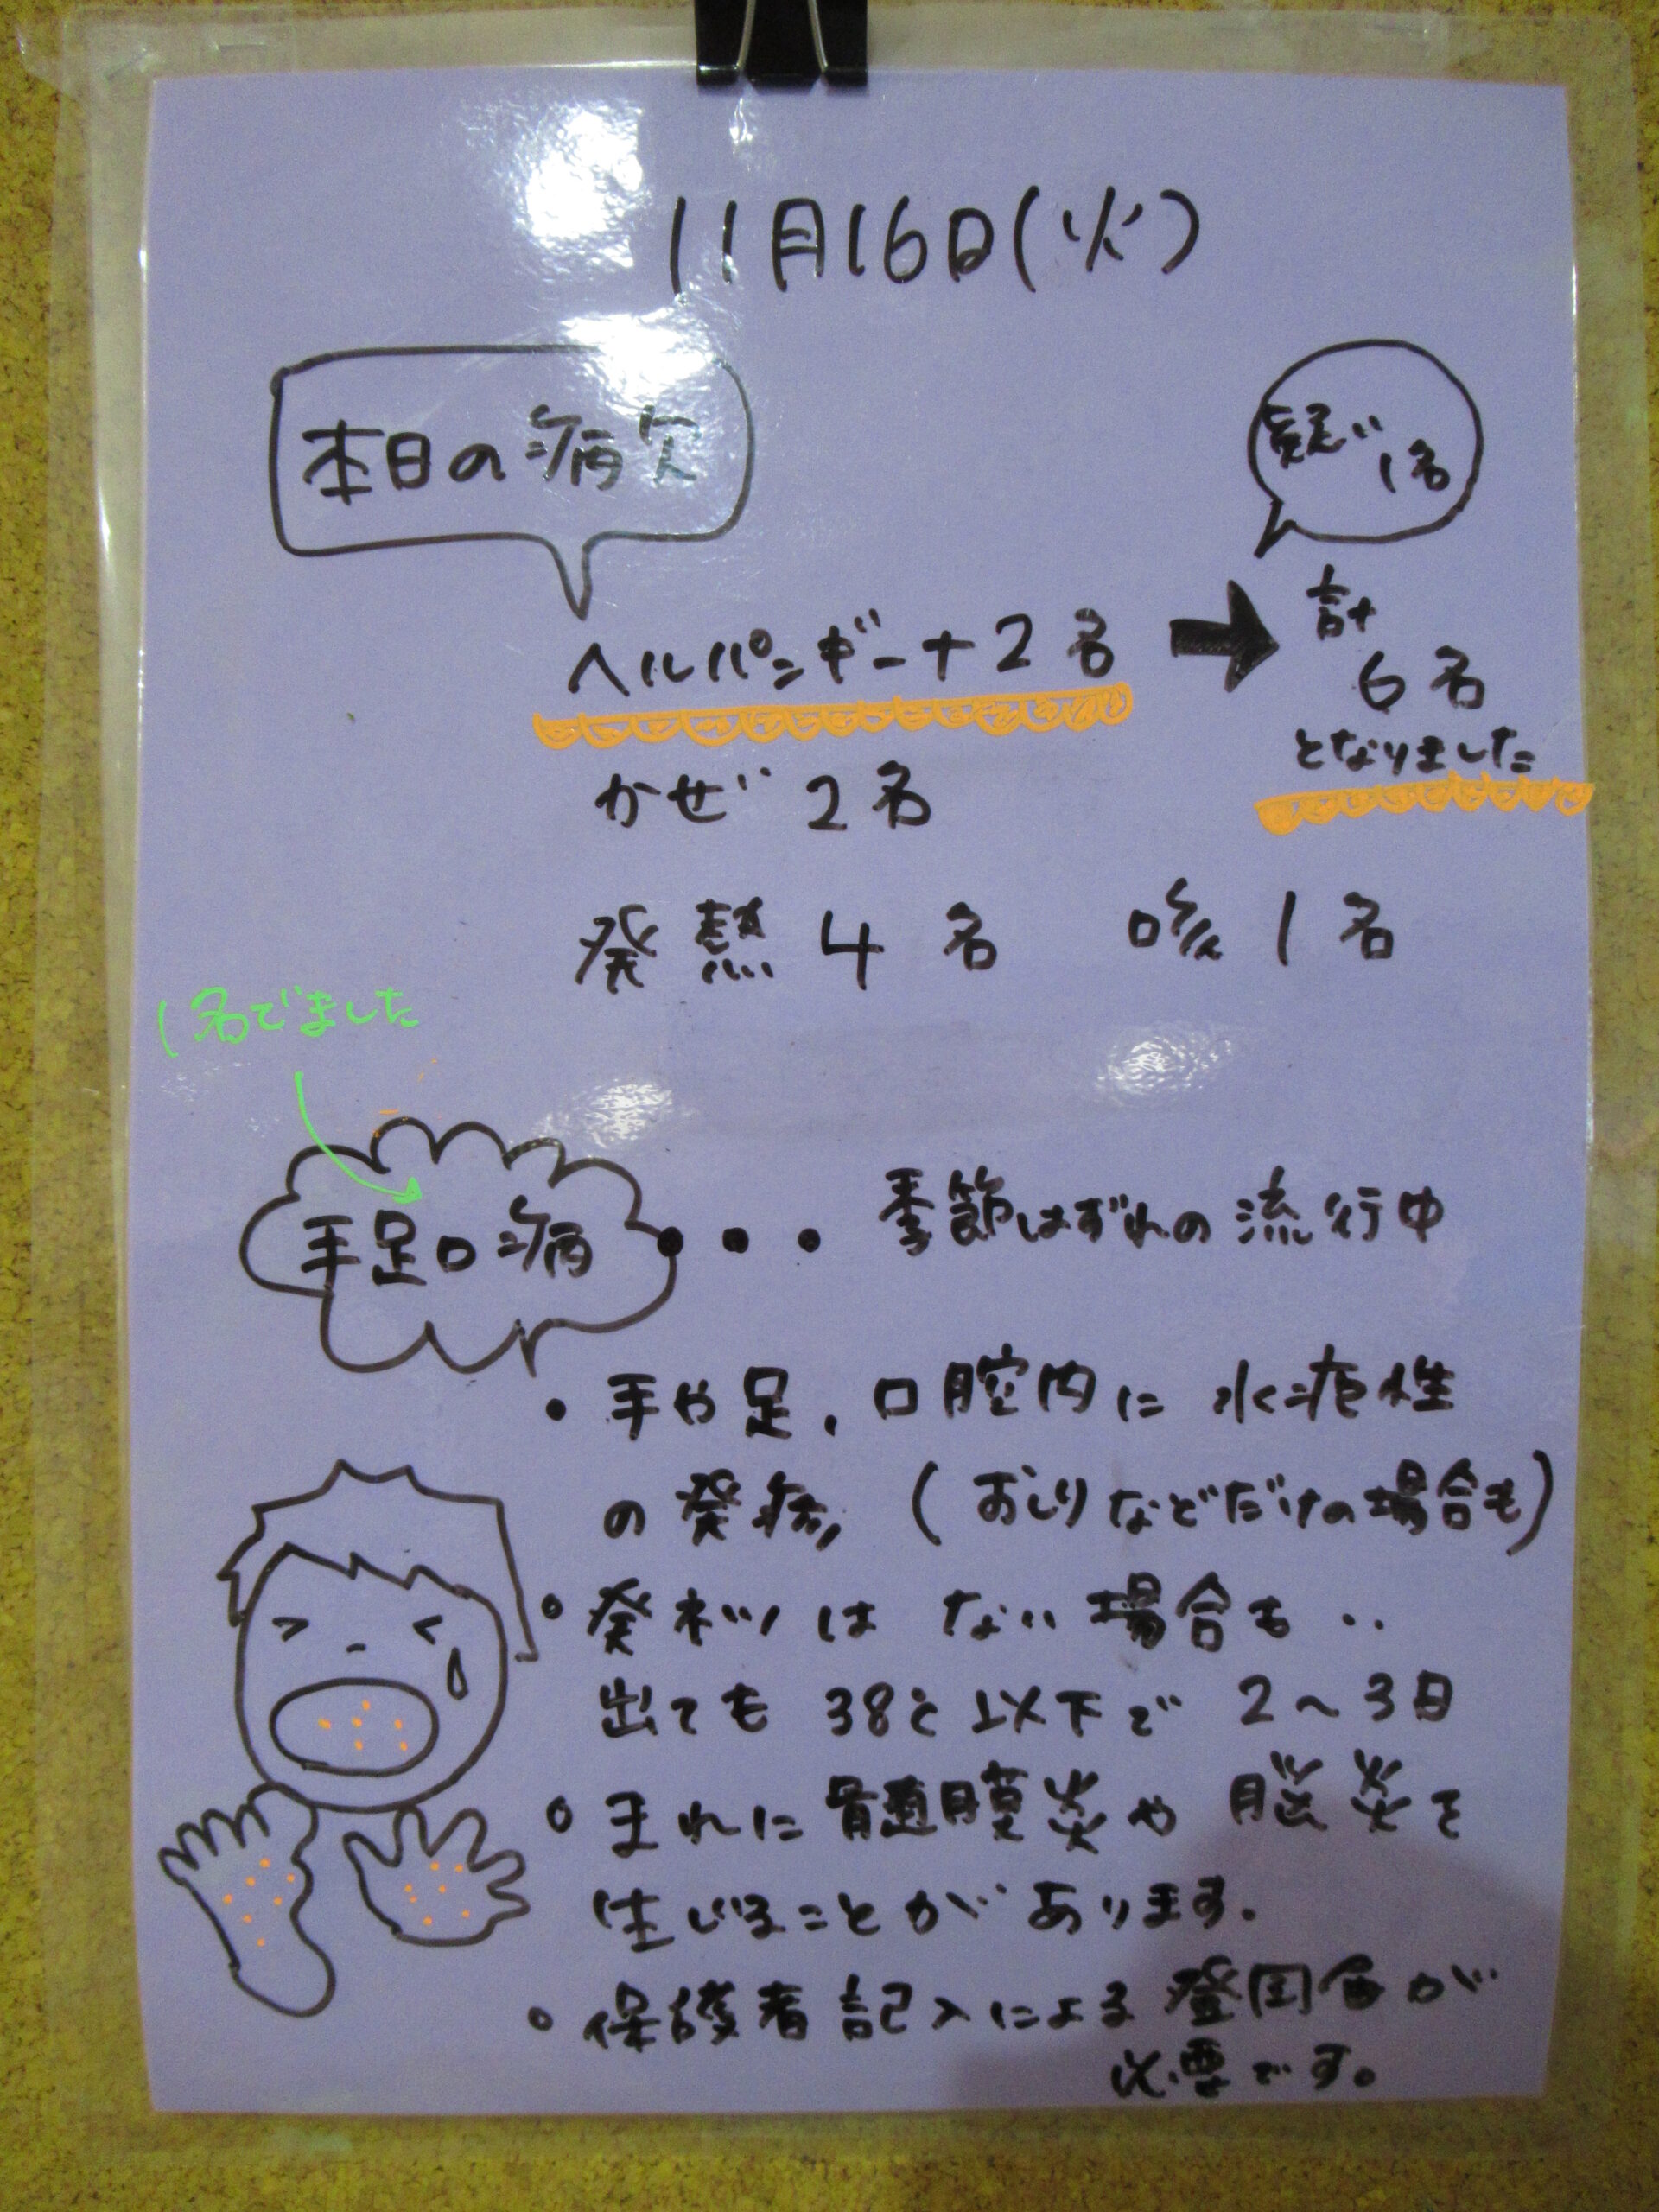 11月16日(火)
本日の病欠
疑い
1名
ヘルパンギーナ2名
計
6名
となりました
かぜ 2名
発熱4名 咳1名
1名でました
手足口病・・・季節はずれの流行中
・手や足、口腔内に水疱性
の発疹 (おしりなどだけの場合も)
・発ネツはない場合も‥
出ても38℃以下で2〜3日
・まれに髄膜炎や脳炎を
生じることがあります。
・保護者記入による登園届が
必要です。